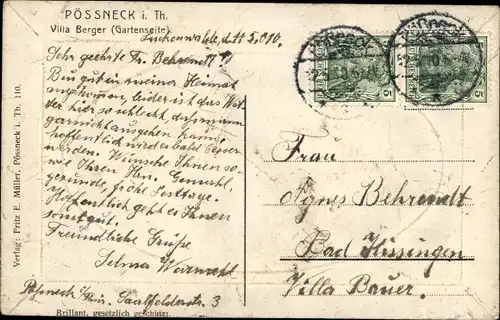 PÖSSNECK i. Th.
Villa Berger (Gartenseite).
Sehr geehrte Fr. Behrendt!
Bin gut in meiner Heimat
angekommen, leider ist das Wet
ter hier so schlecht, dass man
garnicht ausgehen kann,
hoffentlich wird es bald besser
werden. Wünsche Ihnen so-
wie Ihren Hrn. Gemahl
gesunde, frohe Festtage.
Hoffentlich geht es Ihnen
sonst gut.
Freundliche Grüße
Selma
Pössneck i/Thür. Saalfelderstr. 3
Brillant, gesetzlich geschützt.
Verlag: Fritz E. Müller, Pössneck i. Th. 110.
5
5
Frau
Agnes Behrendt
Bad Kissingen
Villa Bauer.